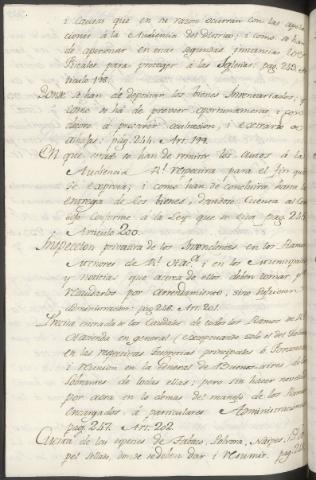 i causas que en su razon ocurran con las apela
ciones à la Audiencia del Distrito; i como se han
de apersonar en esas segundas instancias los
Fiscales para proteger à las Iglesias. pag. 243. Ar
ticulo 198.
Donde se han de depositar los bienes Inventariados; i
como se ha de proveer oportunamente, i por
à precaver ocultacion, i extravio de
alhajas. pag. 244. Art. 199.
En que estado se han de remitir los Autos à la
Audiencia Rl. respectiva para el fin que
se expresa; i como han de concluirse hasta la
entrega de los bienes, dandose Cuenta al Con
sejo conforme à la Ley que se cita. pag. 245
Articulo 200.
Inspeccion privativa de los Intendentes en los Ramos
Menores de Rl. Haza. i en los Municipales
y noticias que acerca de ellos deben tomar p.
recaudarlos por Arrendamiento, sino
Administracion. pag. 246. Art. 201.
Precisa entrada de los Caudales de todos los Ramos de Rl.
Hacienda en general (exceptuando solo el del
en las respectivas Tesorerias principales ò Foraneas
i reunion en la General de Buenos-aires de los
sobrantes de todas ellas; pero sin hacer novedad
por aora en lo demas del manejo de los Ramos
encargados à particulares Administraciones
pag. 247. Art. 202.
Cuenta de las especies de Tabaco, Polvora, Naipes, i Pa
pel sellado, donde se deben dar i reasumir. pag. 248